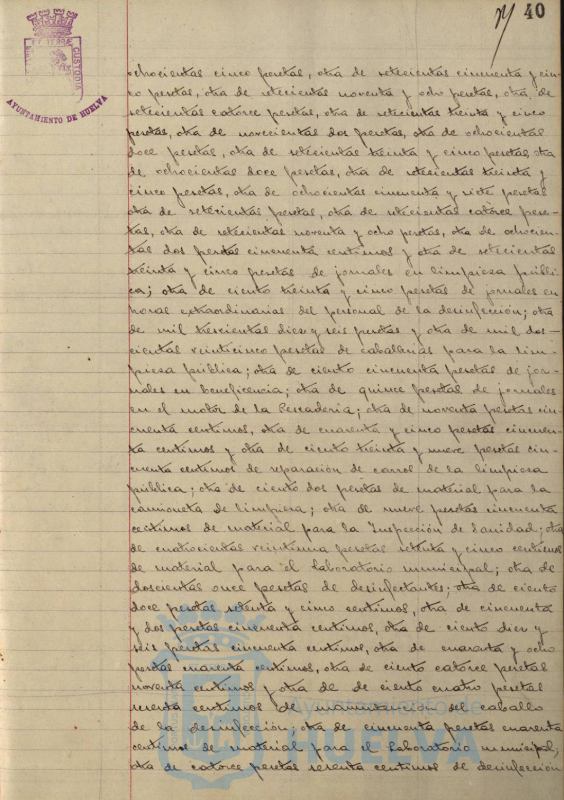 40
CUSTODIA
AYUNTAMIENTO DE HUELVA
ochocientas cinco pesetas, otra de setecientas cincuenta y cin-
co pesetas, otra de setecientas noventa y ocho pesetas, otra de
setecientas catorce pesetas, otra de setecientas treinta y cinco
pesetas, otra de novecientas dos pesetas, otra de ochocientas
doce pesetas, otra de setecientas treinta y cinco pesetas, otra
de ochocientas doce pesetas, otra de setecientas treinta y
cinco pesetas, otra de ochocientas cincuenta y siete pesetas
otra de setecientas pesetas, otra de setecientas catorce pese-
tas, otra de setecientas noventa y ocho pesetas, otra de ochocien-
tas dos pesetas cincuenta centimos y otra de setecientas
treinta y cinco pesetas de jornales en limpieza públi-
ca; otra de ciento treinta y cinco pesetas de jornales en
horas extraordinarias del personal de la desinfección; otra
de mil trescientas diez y seis pesetas y otra de mil dos-
cientas veinticinco pesetas de caballerias para la lim-
pieza pública; otra de ciento cincuenta pesetas de jor-
nales en beneficencia; otra de quince pesetas de jornales
en el motor de la Pescaderia; otra de noventa pesetas cin-
cuenta centimos, otra de cuarenta y cinco pesetas cincuen-
ta centimos y otra de ciento treinta y nueve pesetas cin-
cuenta centimos de reparación de carros de la limpieza
pública; otra de ciento dos pesetas de material para la
camioneta de limpieza; otra de nueve pesetas cincuenta
centimos de material para la Inspección de Sanidad; otra
de cuatrocientas veintiuna pesetas setenta y cinco centimos
de material para el Laboratorio municipal; otra de
doscientas once pesetas de desinfectantes; otra de ciento
doce pesetas setenta y cinco centimos, otra de cincuenta
y dos pesetas cincuenta centimos, otra de ciento diez y
seis pesetas cincuenta centimos, otra de cuarenta y ocho
pesetas cuarenta centimos, otra de ciento catorce pesetas
noventa centimos y otra de de ciento cuatro pesetas
sesenta centimos de manutención del caballo
de la desinfección; otra de cincuenta pesetas cuarenta
centimos de material para el Laboratorio municipal;
otra de catorce pesetas sesenta centimos de desinfección
Ayuntamiento de
HUELVA